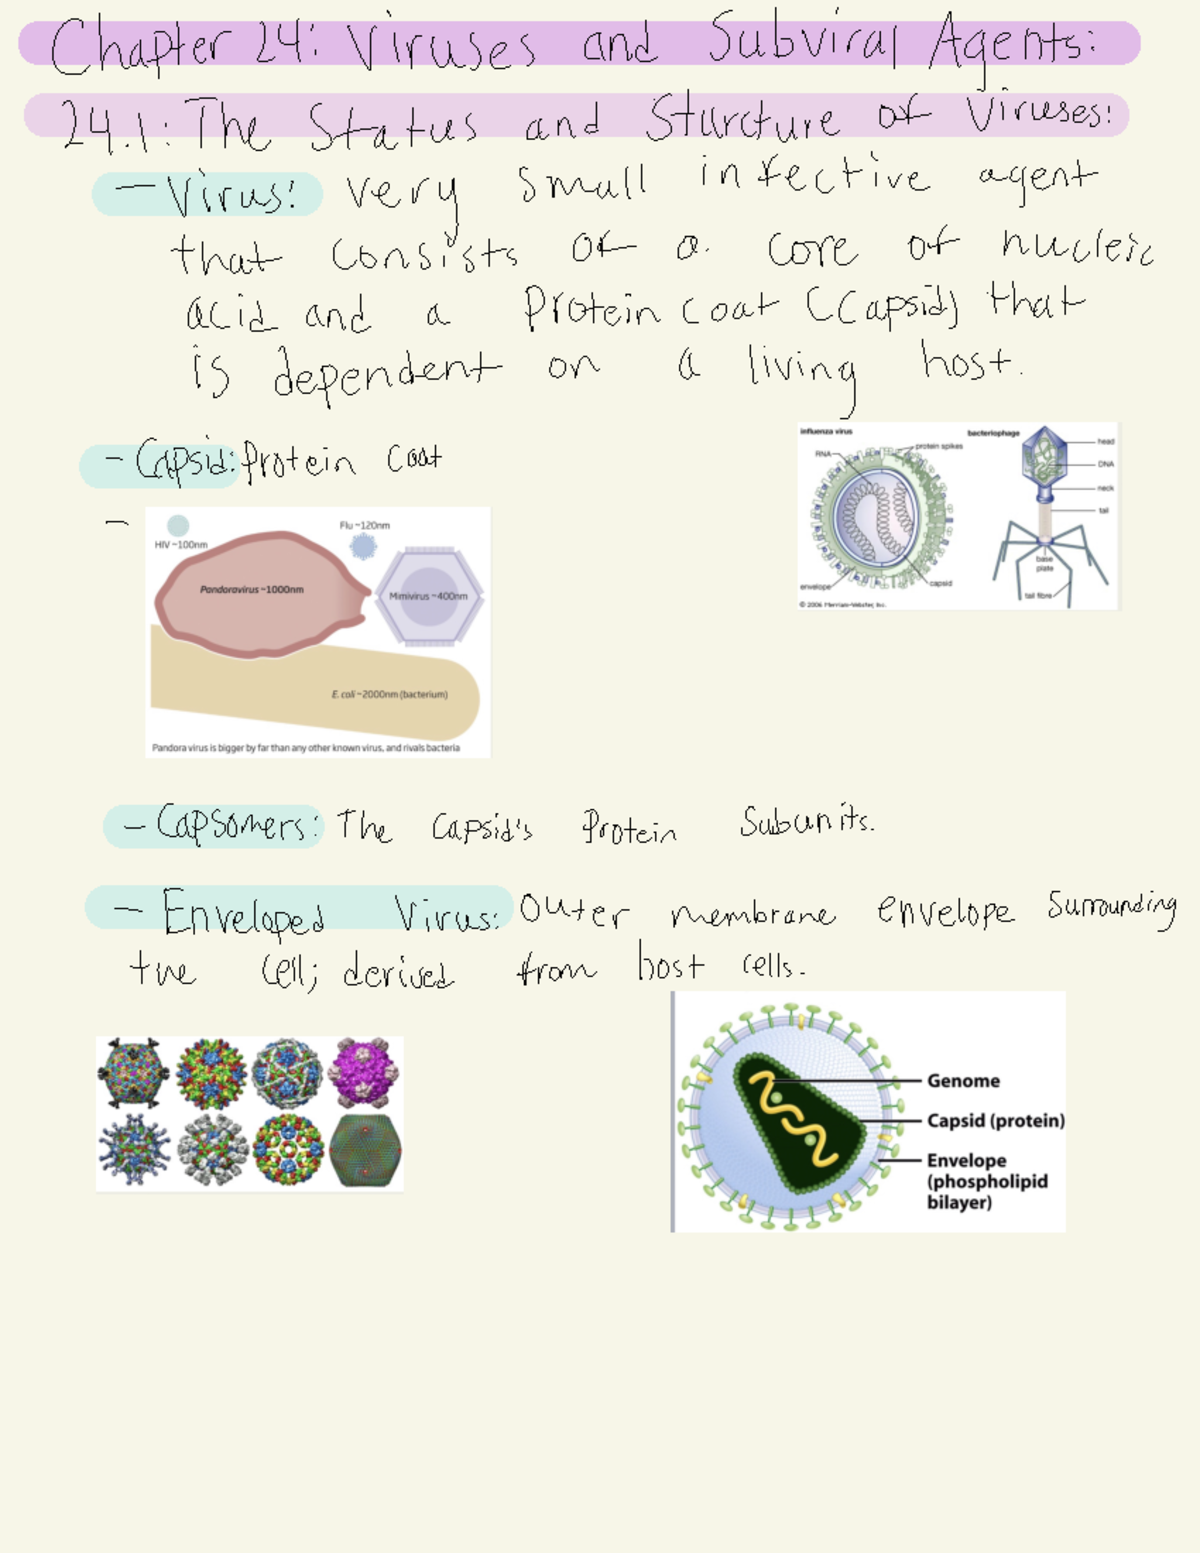 Chapter 24: Viruses and Subviral Agents:
24.1: The Status and Sturcture of Viruses:
- Virus: very small infective agent
that consists of a core of nucleic
acid and a Protein coat (Capsid) that
is dependent on a living host.
- Capsid: Protein coat
influenza virus
RNA
protein spikes
envelope
capsid
© 2006 Merriam-Webster, Inc.
bacteriophage
head
DNA
neck
tail
base
plate
tail fibre
-
HIV ~100nm
Flu ~120nm
Pandoravirus ~1000nm
Mimivirus ~400nm
E. coli ~2000nm (bacterium)
Pandora virus is bigger by far than any other known virus, and rivals bacteria
- Capsomers: The Capsid's Protein Subunits.
- Enveloped Virus: Outer membrane envelope Surrounding
the Cell; derived from host cells.
Genome
Capsid (protein)
Envelope
(phospholipid
bilayer)